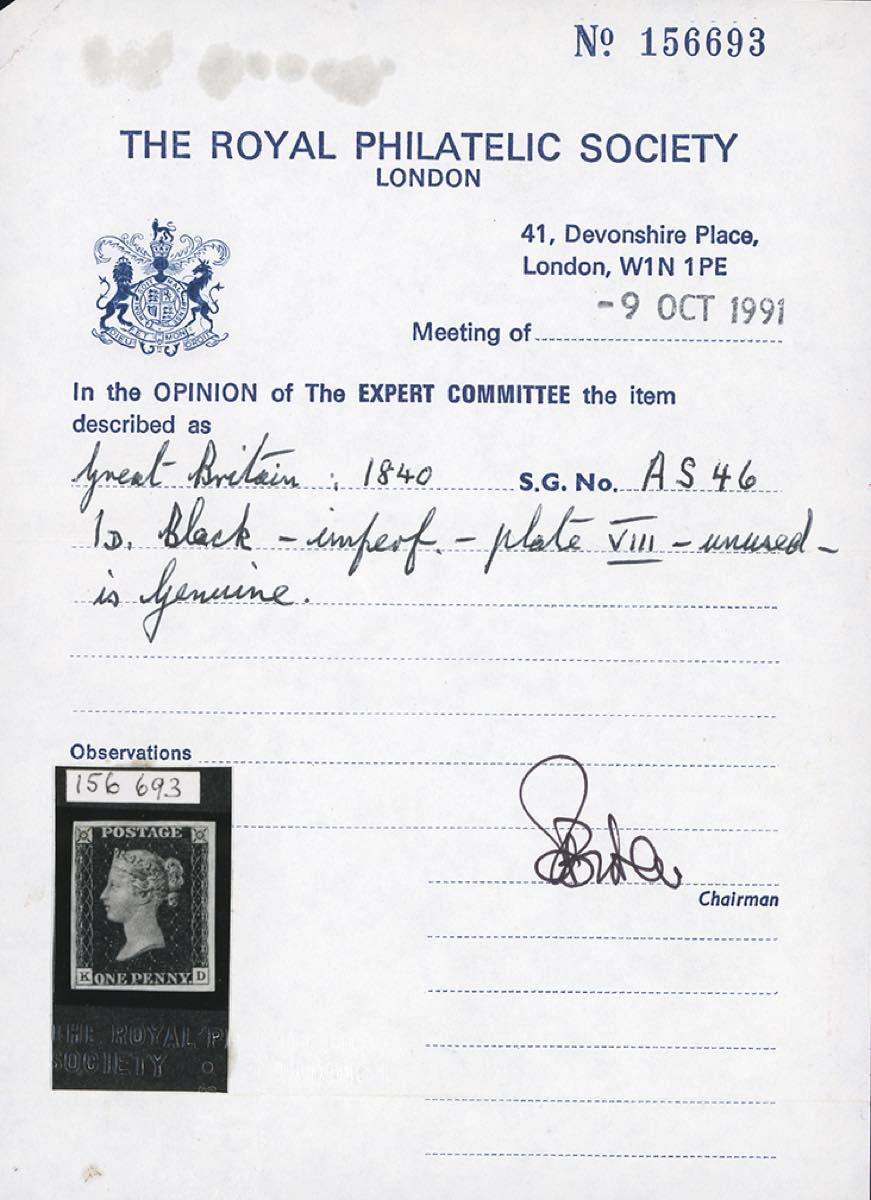 Nº 156693
THE ROYAL PHILATELIC SOCIETY
LONDON
41, Devonshire Place,
London, W1N 1PE
-9 OCT 1991
Meeting of
In the OPINION of The EXPERT COMMITTEE the item
described as
Great Britain : 1840 S.G. No. AS46
1D. Black - imperf. - plate VIII - unused -
is Genuine.
Observations
156 693
POSTAGE
Chairman
K ONE PENNY. D
THE ROYAL P
SOCIETY